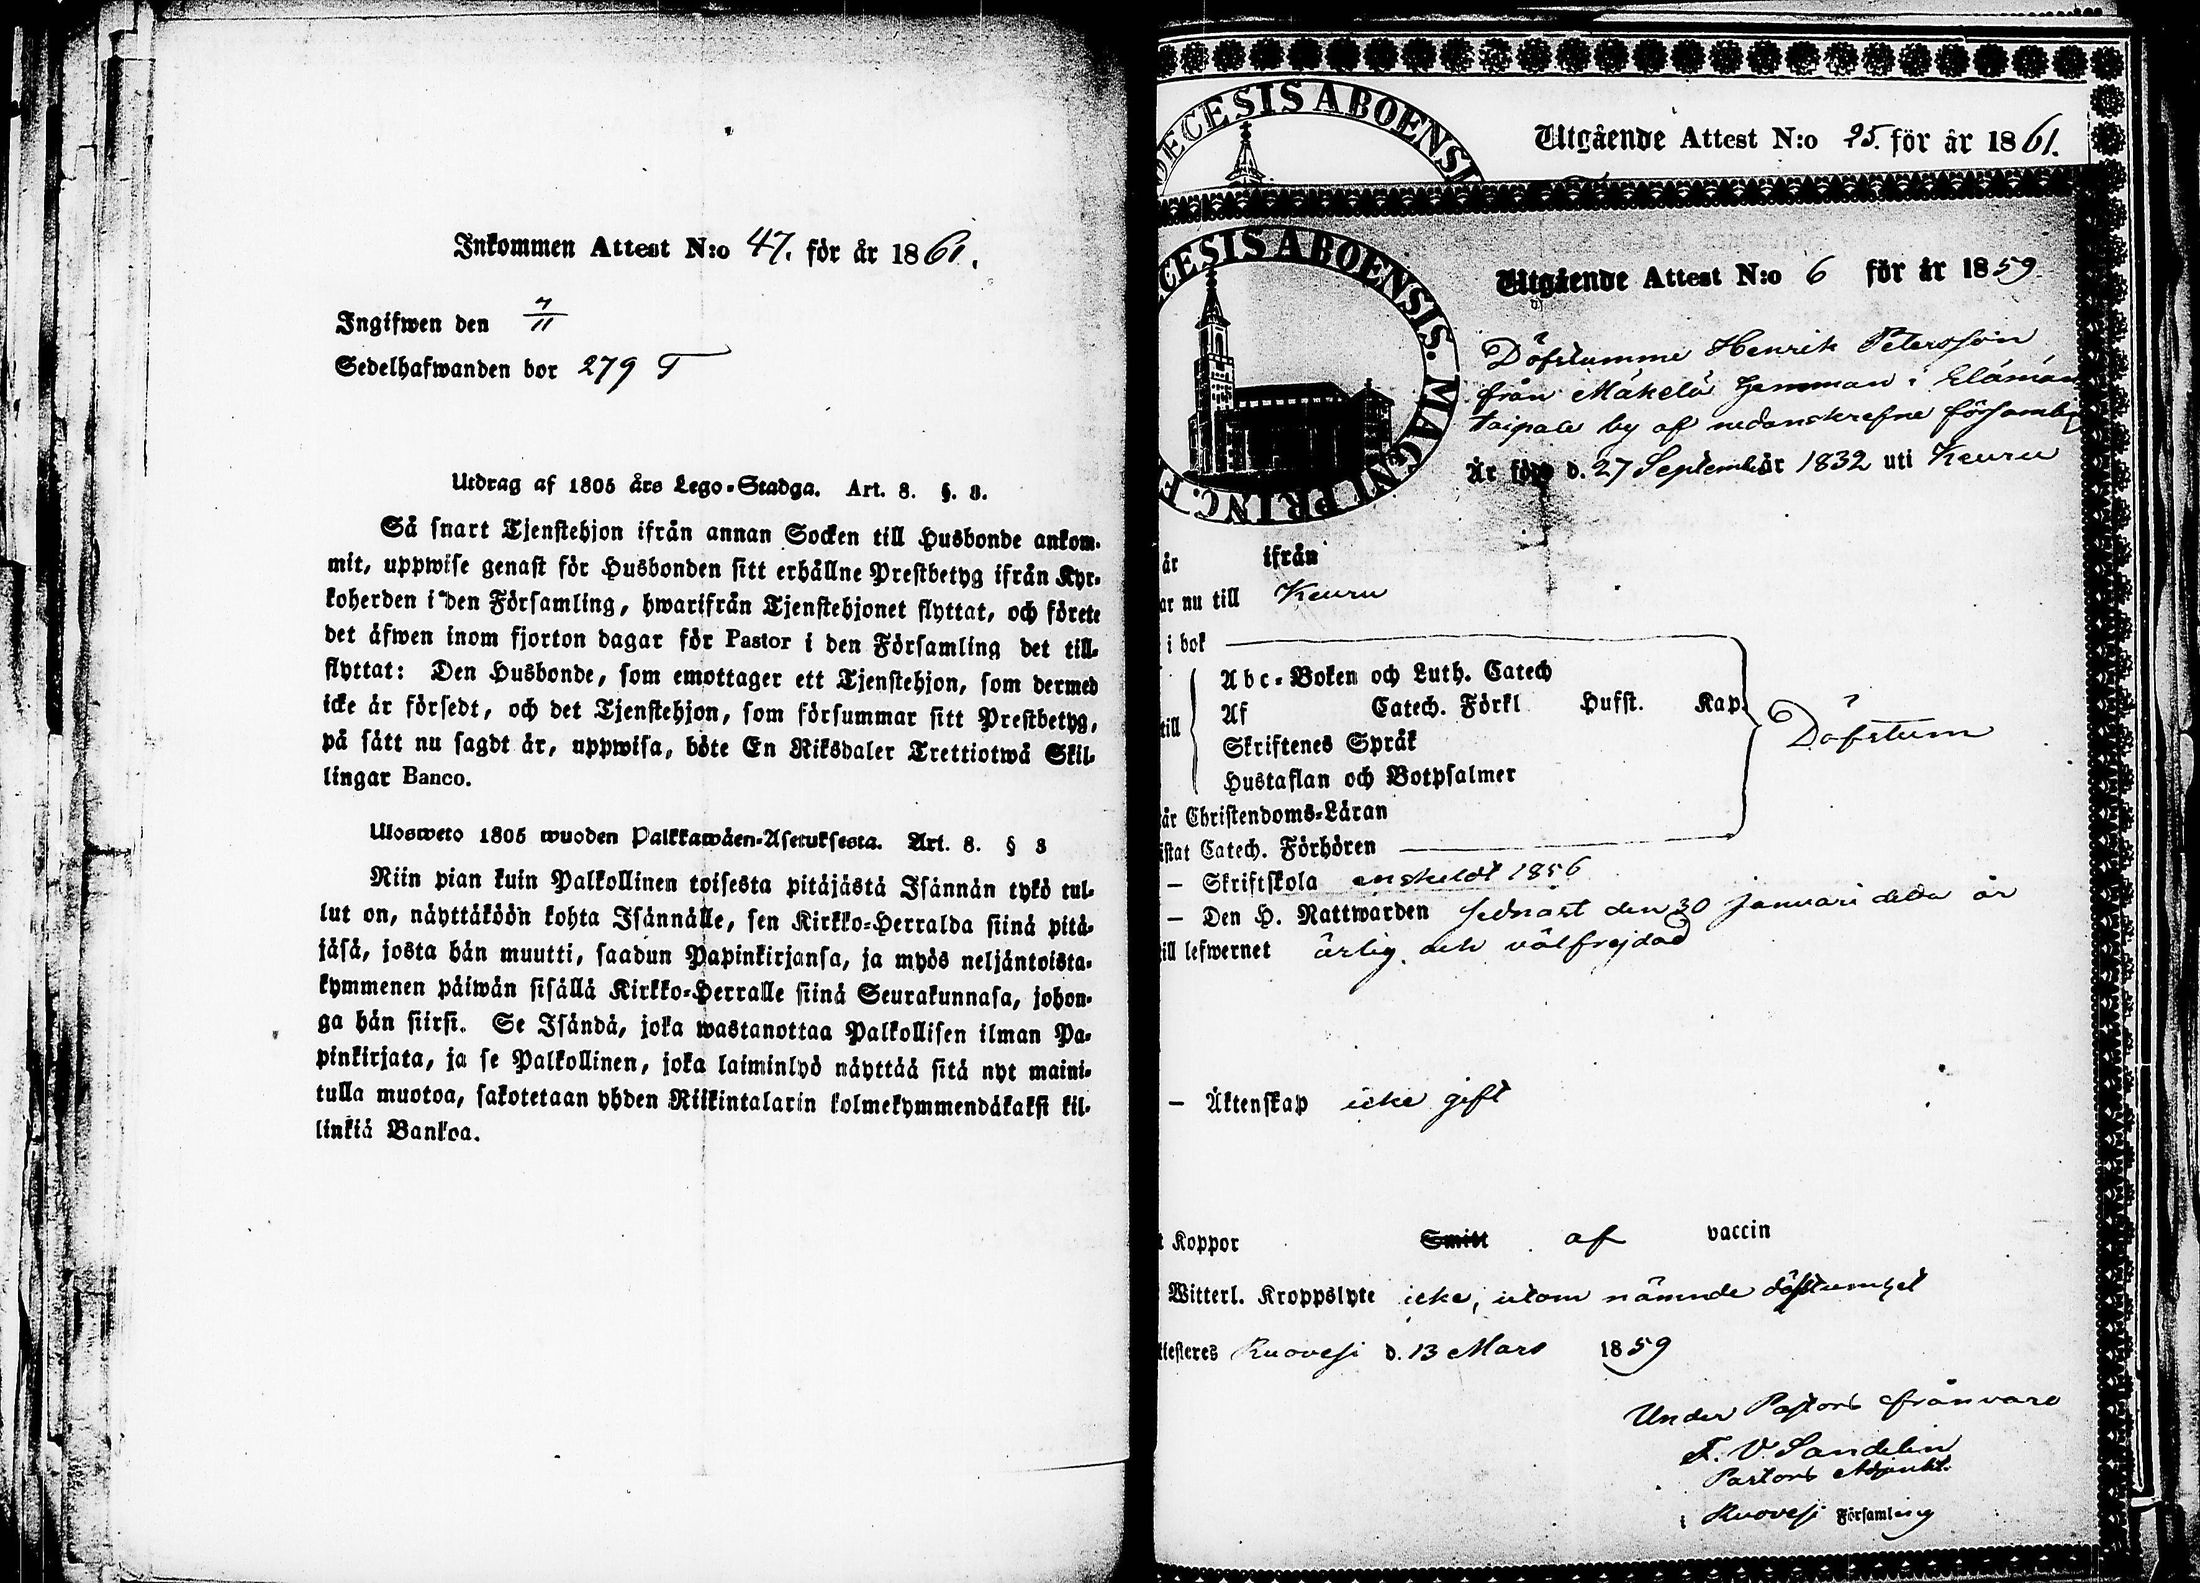 Inkommen Attest N:o 47. för år 1861.
Ingifwen den 7/11
Sedelhafwanden bor 279 T
Utdrag af 1805 års Lego-Stadga. Art. 8. §. 3.
Så snart Tjenstehjon ifrån annan Socken till Husbonde ankom-
mit, uppwise genast för Husbonden sitt erhållne Prestbetyg ifrån Kyr-
koherden i den Församling, hwarifrån Tjenstehjonet flyttat, och förete
det äfwen inom fjorton dagar för Pastor i den Församling det till-
flyttat: Den Husbonde, som emottager ett Tjenstehjon, som dermed
icke är försedt, och det Tjenstehjon, som försummar sitt Prestbetyg,
på sätt nu sagdt är, uppwisa, böte En Riksdaler Trettiotwå Skil-
lingar Banco.
Ulosweto 1805 wuoden Palkkawäen-Asetuksesta. Art. 8. § 3
Niin pian kuin Palkollinen toisesta pitäjästä Isännän tykö tul-
lut on, näyttäköön kohta Isännälle, sen Kirkko-Herralda siinä pitä-
jäsä, josta hän muutti, saadun Papinkirjansa, ja myös neljäntoista-
kymmenen päiwän sisällä Kirkko-Herralle siinä Seurakunnasa, johon-
ga hän siirsi. Se Isändä, joka wastanottaa Palkollisen ilman Pa-
pinkirjata, ja se Palkollinen, joka laiminlyö näyttää sitä nyt maini-
tulla muotoa, sakotetaan yhden Riikintalarin kolmekymmendäkaksi kil-
linkiä Bankoa.
OECESIS ABOENSI
Utgående Attest N:o 25. för år 1861.
CESIS ABOENSIS. MAGNI PRINC. F
Utgående Attest N:o 6 för år 1859
Döfstumme Henrik Petersson
från Mäkelä hemman i Elämän
taipale by af nedanskrefne församlg
Är född d. 27 September 1832 uti Keuru
är ifrån
ar nu till Keuru
i bok
Abc-Boken och Luth. Catech
till Af Catech. Förkl Husst. Kap.
Döfstum
Skriftenes Språk
Hustaflan och Botpsalmer
är Christendoms-Läran
istat Catech. Förhören
— Skriftskola enskeldt 1856
— Den H. Nattwarden sednast den 30 januari detta år
ill lefwernet ärlig och välfrejdad
— Äktenskap icke gift
t Koppor Smitt af vaccin
Witterl. Kroppslyte icke, utom nämnde döfstumhet
ttesteres Ruovesi d. 13 Mars 1859
Under Pastors frånvaro
F. V. Sandelin
Pastors Adjunkt.
i Ruovesi Församling